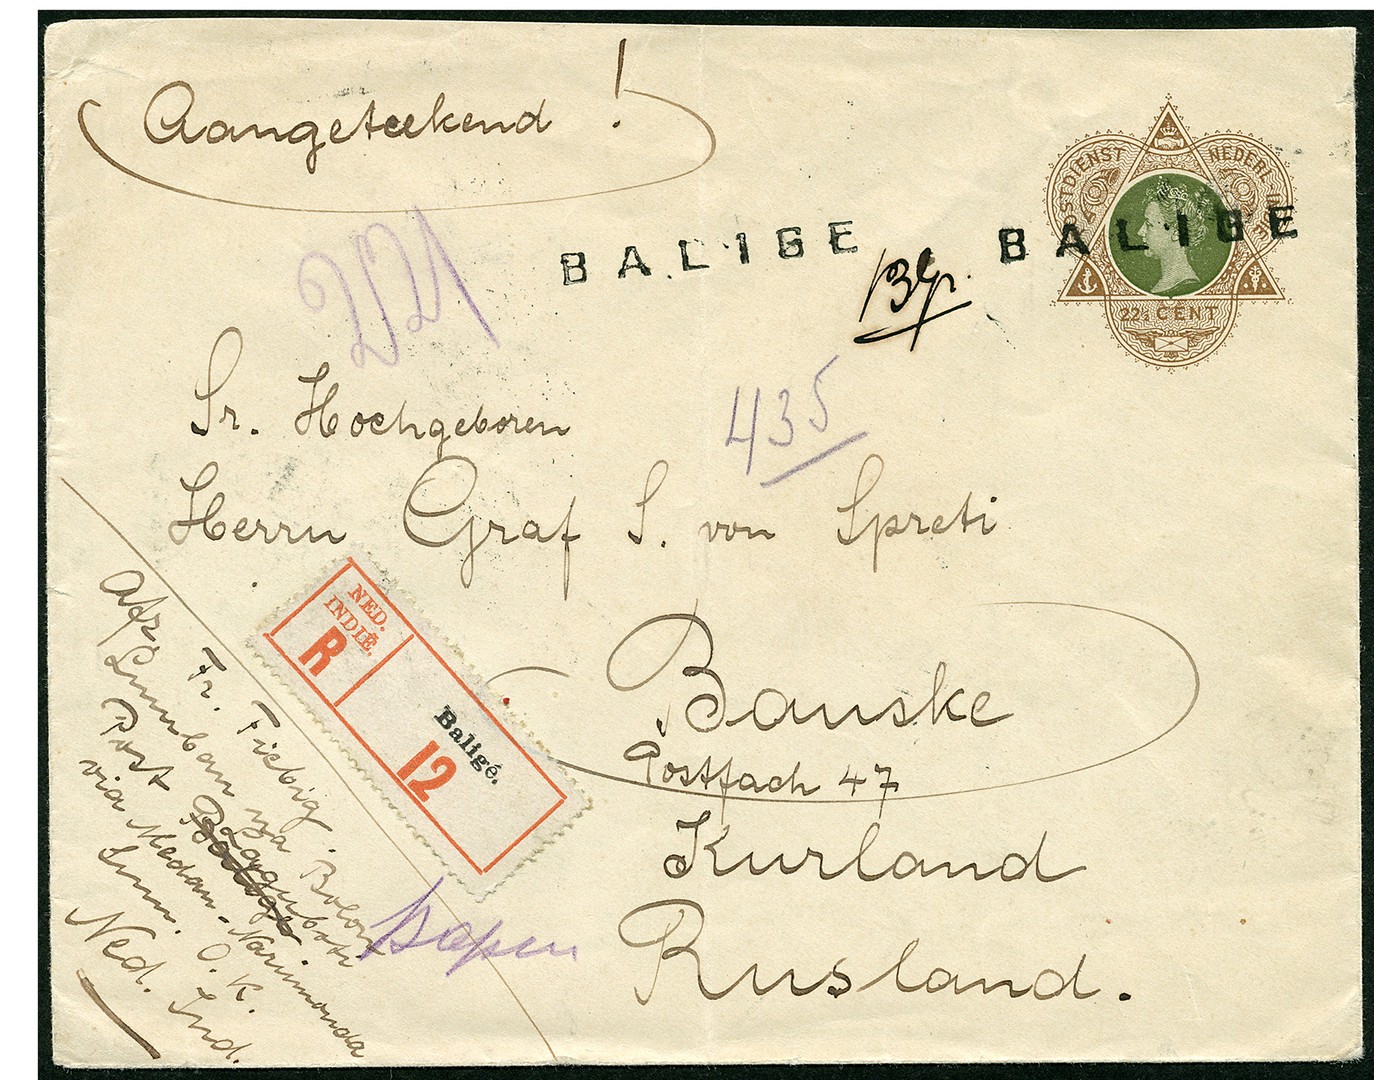 Aangeteekend !
POSTDIENST NEDERL. INDIE
22½ CENT
BALIGE BALIGE
13 gr.
221
435
Sr. Hochgeboren
Herrn Graf S. von Spreti
Bauske
Postfach 47
Kurland
Rusland.
NED.
INDIË.
R
Baligé.
12
Adr. Fr. Fiebig
Lumban na Bolon
Post Laguboti
via Medan - Narimonda
Sum. O. K.
Ned. Ind.